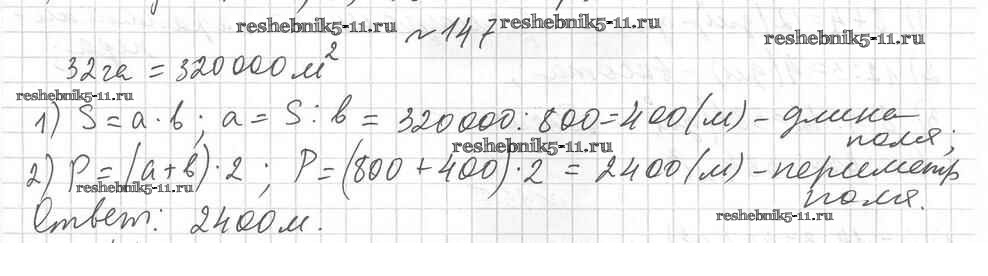 reshebnik5-11.ru reshebnik5-11.ru
№147 reshebnik5-11.ru
32га = 320000м²
reshebnik5-11.ru
1) S = a · b ; a = S : b = 320000 : 800 = 400 (м) – длина
поля;
reshebnik5-11.ru
2) P = (a + b) · 2 ; P = (800 + 400) · 2 = 2400 (м) – периметр
reshebnik5-11.ru поля.
reshebnik5-11.ru
Ответ: 2400м.